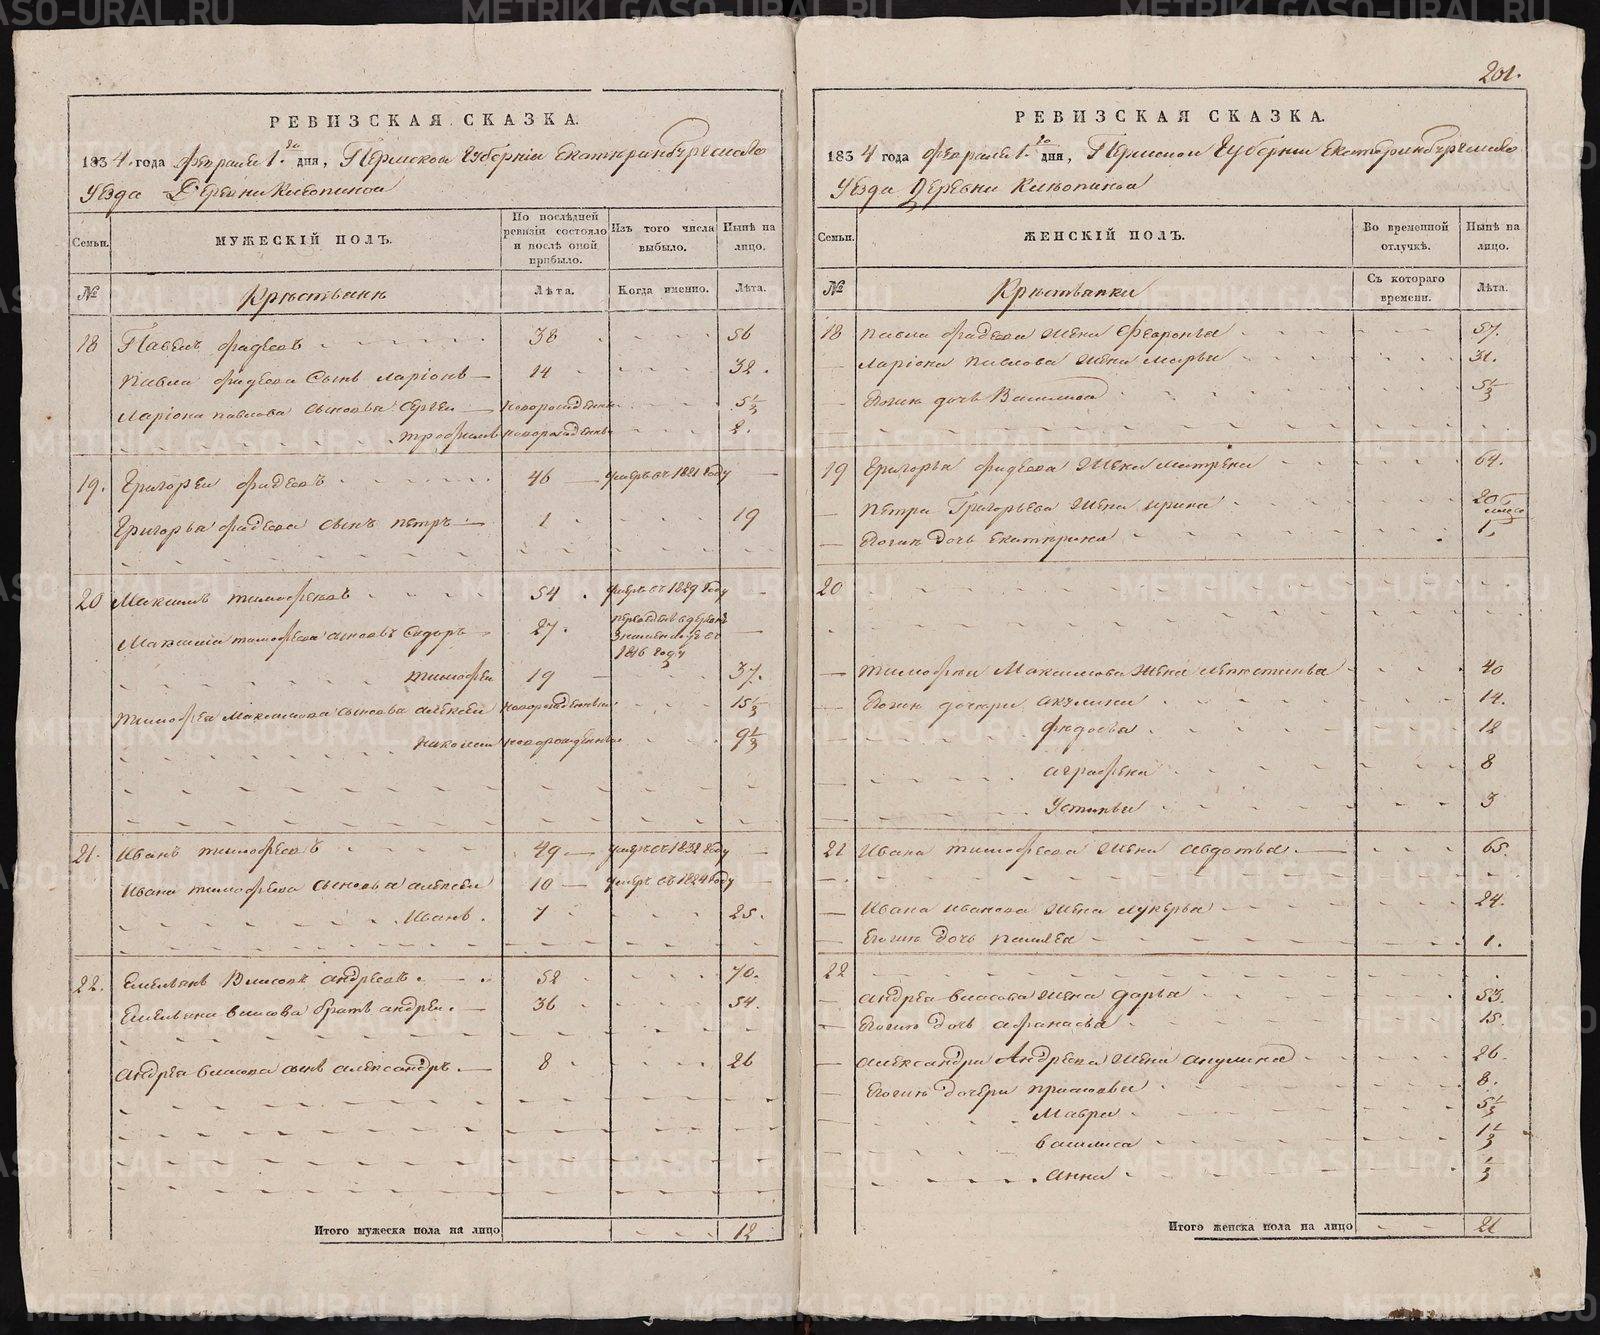 201.
РЕВИЗСКАЯ СКАЗКА.
1834 года февраля 1.го дня, Пермской губернии Екатеринбургскаго
Уезда Деревни
Семьи.
МУЖЕСКІЙ ПОЛЪ.
По последней ревизіи состояло и послѣ оной прибыло.
Изъ того числа выбыло.
Нынѣ на лицо.
№
Крестьяне
Лѣта.
Когда именно.
Лѣта.
18 Павелъ фадеевъ 38 56
Павла фадеева сынъ Ларіонъ 14 32.
Ларіона павлова сыновья Сергеи новорожденны 5 1/3
трофимъ новорожденны 2.
19. Григореи фадеевъ 46 умеръ въ 1821 году
Григорья фадеева сынъ петръ 1 19
20 Максимъ тимофеевъ 54 умеръ въ 1829 году
Максима тимофеева сыновья Сидоръ 27. 1816 году
тимофеи 19 37.
тимофея Максимова сыновья алексеи новорожденныи 15 1/3
николаи новорожденны 9 1/3
21. Иванъ тимофеевъ 49 умеръ въ 1832 году
Ивана тимофеева сыновья алексеи 10 умеръ въ 1824 году
Иванъ. 7 25.
22. Емельянъ Власовъ андреевъ. 52 70.
Емельяна власова братъ андреи. 36 54.
андрея власова сынъ александръ. 8 26
Итого мужеска пола на лицо 12
РЕВИЗСКАЯ СКАЗКА.
1834 года февраля 1.го дня, Пермской Губернии Екатеринбургскаго
Уезда Деревни
Семьи.
ЖЕНСКІЙ ПОЛЪ.
Во временной отлучкѣ.
Нынѣ на лицо.
№
Крестьянки
Съ котораго времени.
Лѣта.
18 павла фадеева жена Февронья 57.
Ларіона павлова жена марья 31.
Егожъ дочь Василиса 5 1/3
19 Григорья фадеева жена матрена 64.
петра Григорьева жена ирина 20
Егожъ дочь екатерина 1
20
тимофея Максимова жена 40
Егожъ дочери акулина 14.
федосья 12
аграфена 8
Устинья 3
21 Ивана тимофеева жена авдотья 65.
Ивана иванова жена лукерья 24.
Егожъ дочь 1.
22
андрея власова жена дарья 53.
Егожъ дочь афанасья 15.
александра андреева жена акулина 26.
Егожъ дочери прасковья 8.
мавра 5 1/3
василиса 1 1/3
анна 1/3
Итого женска пола на лицо 21
METRIKI.GASO-URAL.RU